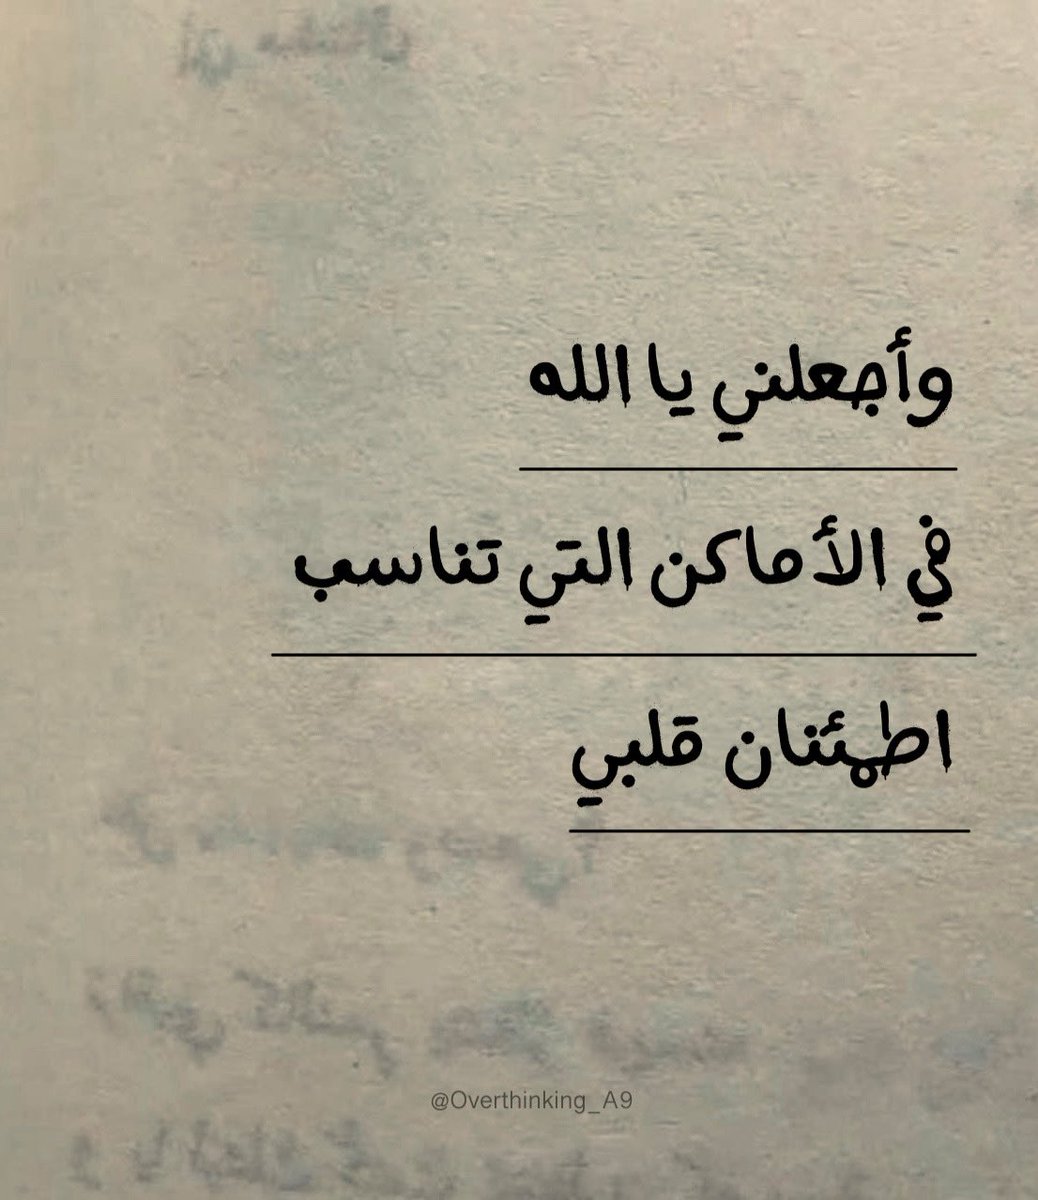 وأجعلني يا الله
في الأماكن التي تناسب
اطمئنان قلبي
@Overthinking_A9